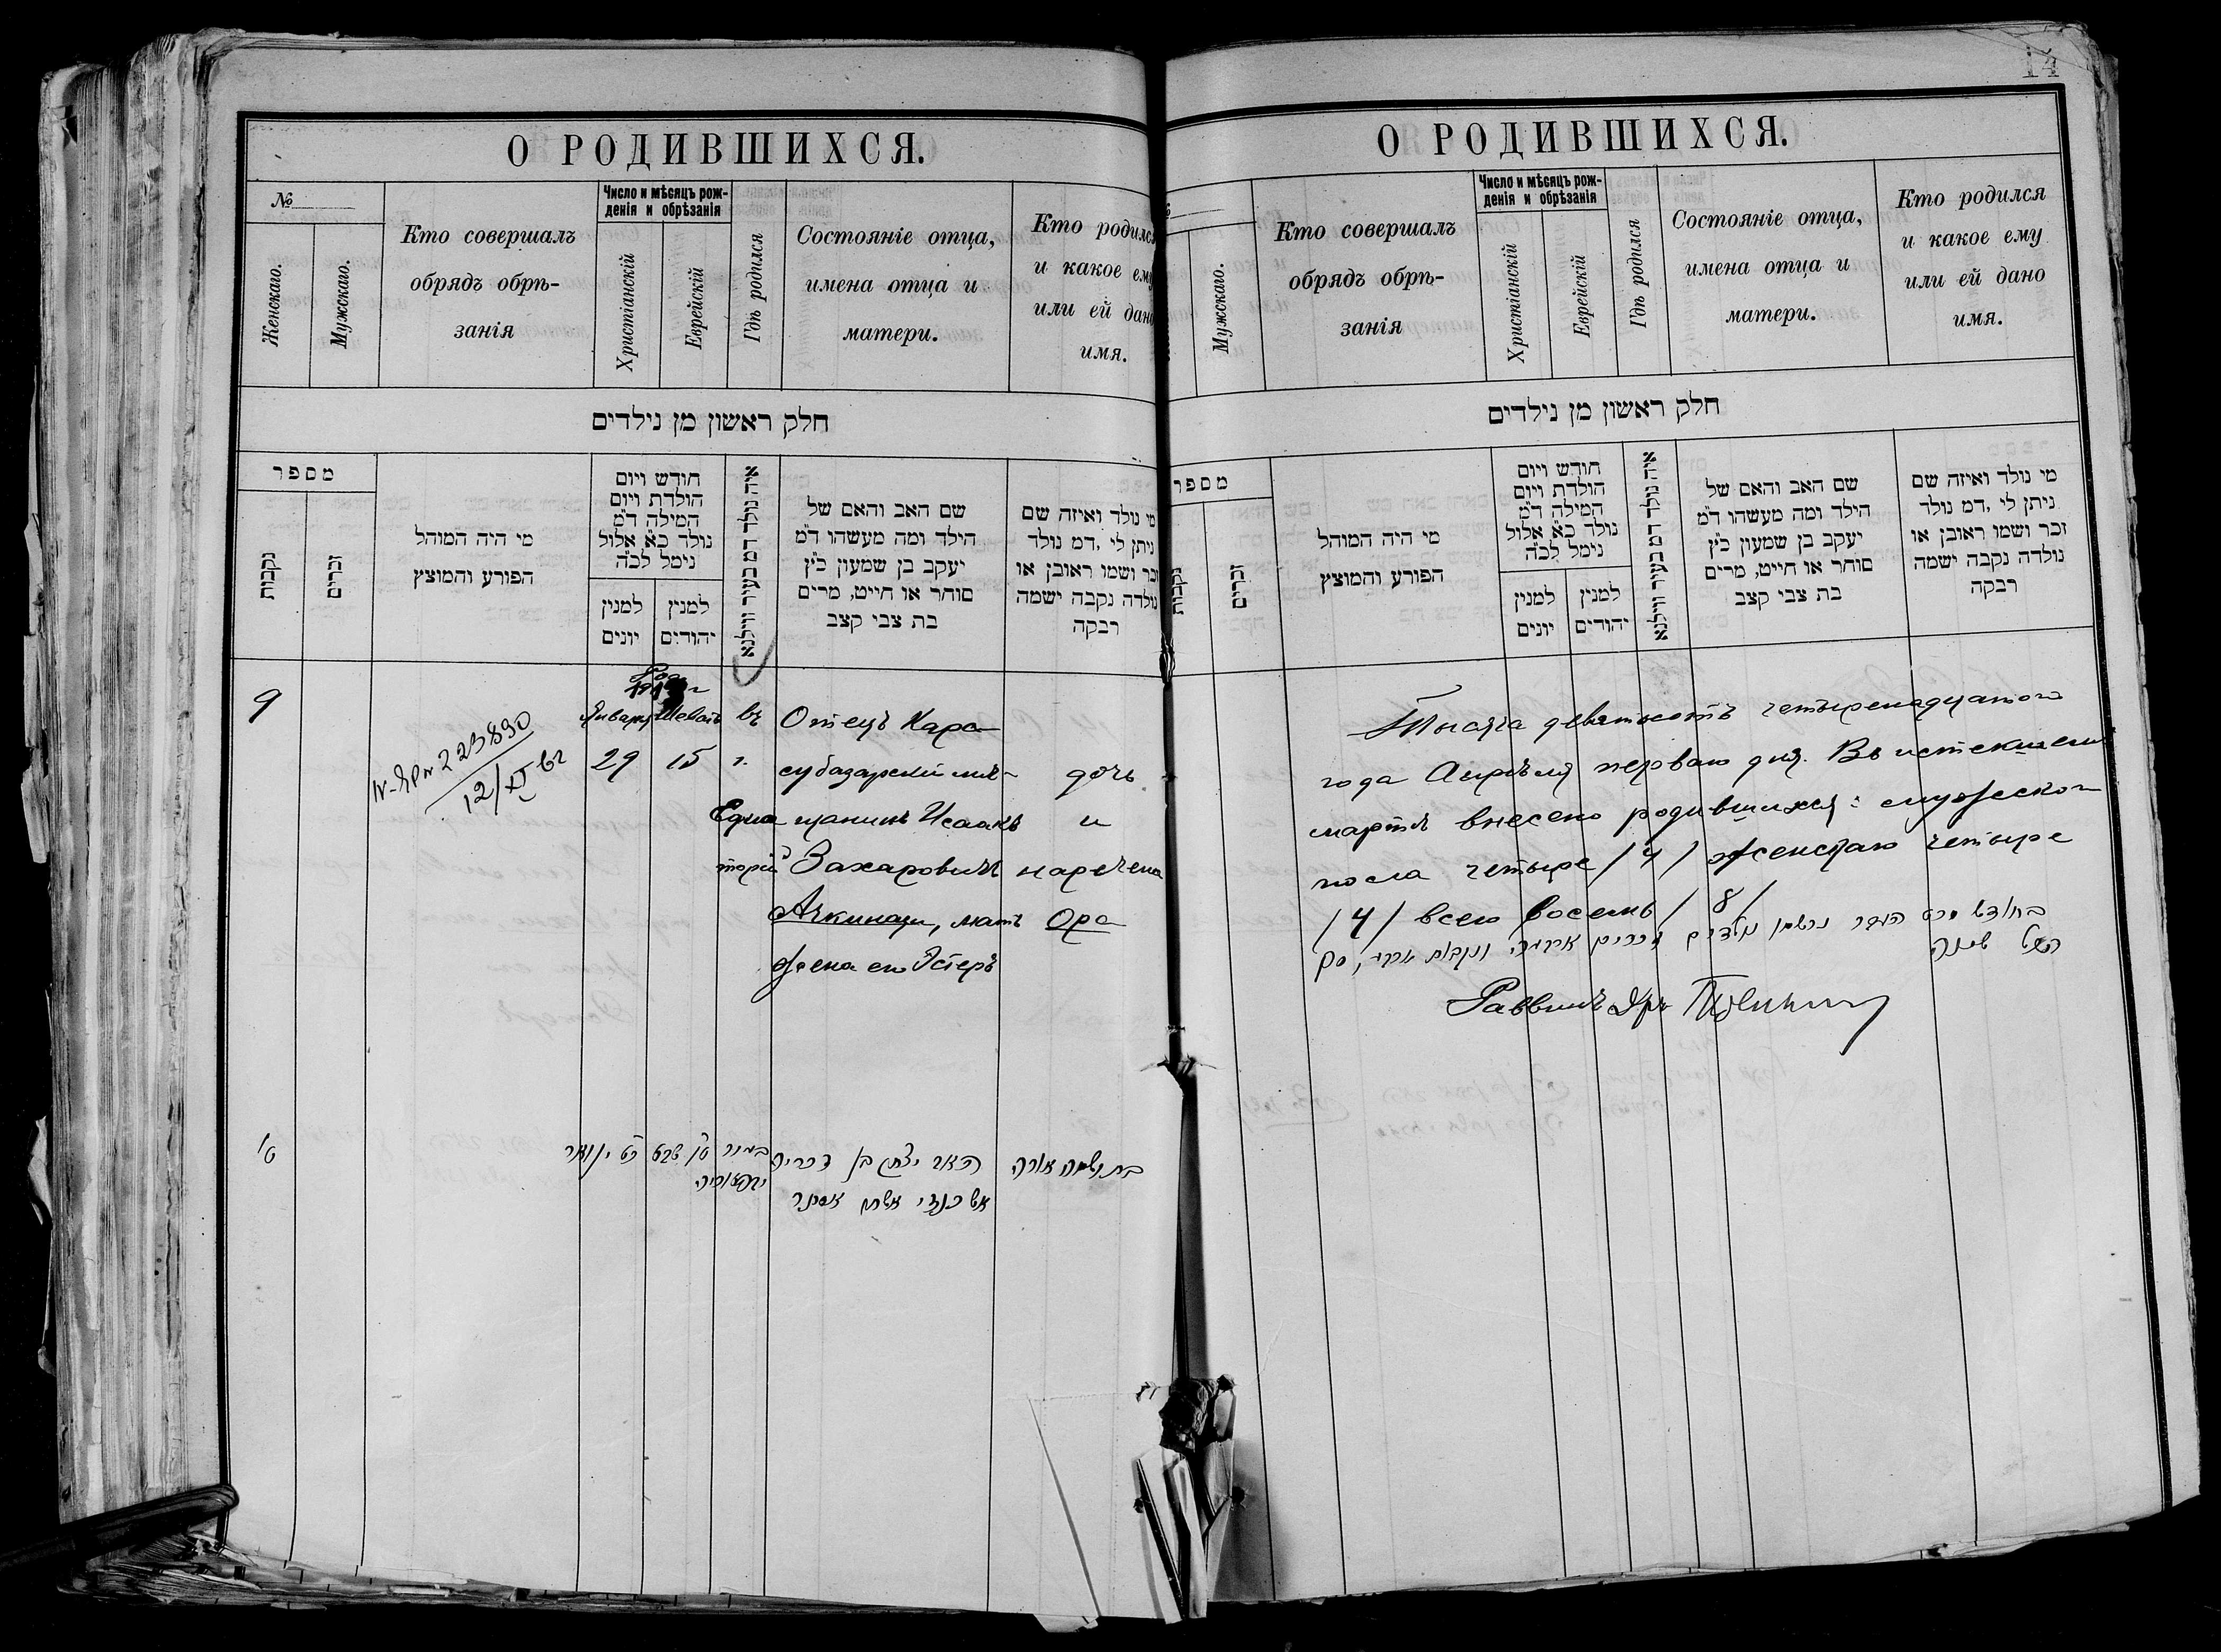 О РОДИВШИХСЯ.
№
Женскаго.
Мужскаго.
Кто совершалъ
обрядъ обрѣ-
занія
Число и мѣсяцъ рож-
денія и обрѣзанія
Христіанскій
Еврейскій
Гдѣ родился
Состояніе отца,
имена отца и
матери.
Кто родился
и какое ему
или ей дано
имя.
חלק ראשון מן נילדים
מספר
נקבות
זכרים
מי היה המוהל
הפורע והמוצץ
חודש ויום
הולדת ויום
המילה ד"מ
נולד כ"א אלול
נימל לכ"ה
למנין
יונים
למנין
יהודים
איה נולד דמ בעיר ווילנא
שם האב והאם של
הילד ומה מעשהו ד"מ
יעקב בן שמעון כ"ץ
סוחר או חייט, מרים
בת צבי קצב
מי נולד ואיזה שם
ניתן לי ,דמ נולד
זכר ושמו ראובן או
נולדה נקבה ישמה
רבקה
9
223890
12/XI
Января
29
Шеватъ
15
въ
г.
Евпа
торіи
Отецъ Кара
субазарскій мѣ-
щанинъ Исаакъ
Захаровичъ
Ачкинази, мать
жена его Эстеръ
дочь
и
наречена
Ора
ט'
כט ינואר
טו שבט
יצחק בן זכריה
אשכנזי אשתו אסתר
בת ושמה אורה
14
О РОДИВШИХСЯ.
Мужскаго.
Кто совершалъ
обрядъ обрѣ-
занія
Число и мѣсяцъ рож-
денія и обрѣзанія
Христіанскій
Еврейскій
Гдѣ родился
Состояніе отца,
имена отца и
матери.
Кто родился
и какое ему
или ей дано
имя.
חלק ראשון מן נילדים
מספר
נקבות
זכרים
מי היה המוהל
הפורע והמוצץ
חודש ויום
הולדת ויום
המילה ד"מ
נולד כ"א אלול
נימל לכ"ה
למנין
יונים
למנין
יהודים
איה נולד דמ בעיר ווילנא
שם האב והאם של
הילד ומה מעשהו ד"מ
יעקב בן שמעון כ"ץ
סוחר או חייט, מרים
בת צבי קצב
מי נולד ואיזה שם
ניתן לי ,דמ נולד
זכר ושמו ראובן או
נולדה נקבה ישמה
רבקה
Тысяча девятьсотъ четырнадцатого
года Апрѣля перваго дня. Въ истекшемъ
мартѣ внесено родившихся: мужеско-
пола четыре /4/ женскаго четыре
/4/ всего восемь /8/
בחודש מרט נרשמו נולדים זכרים ארבעה ונקבות
הכל שמנה
Раввинъ Др.